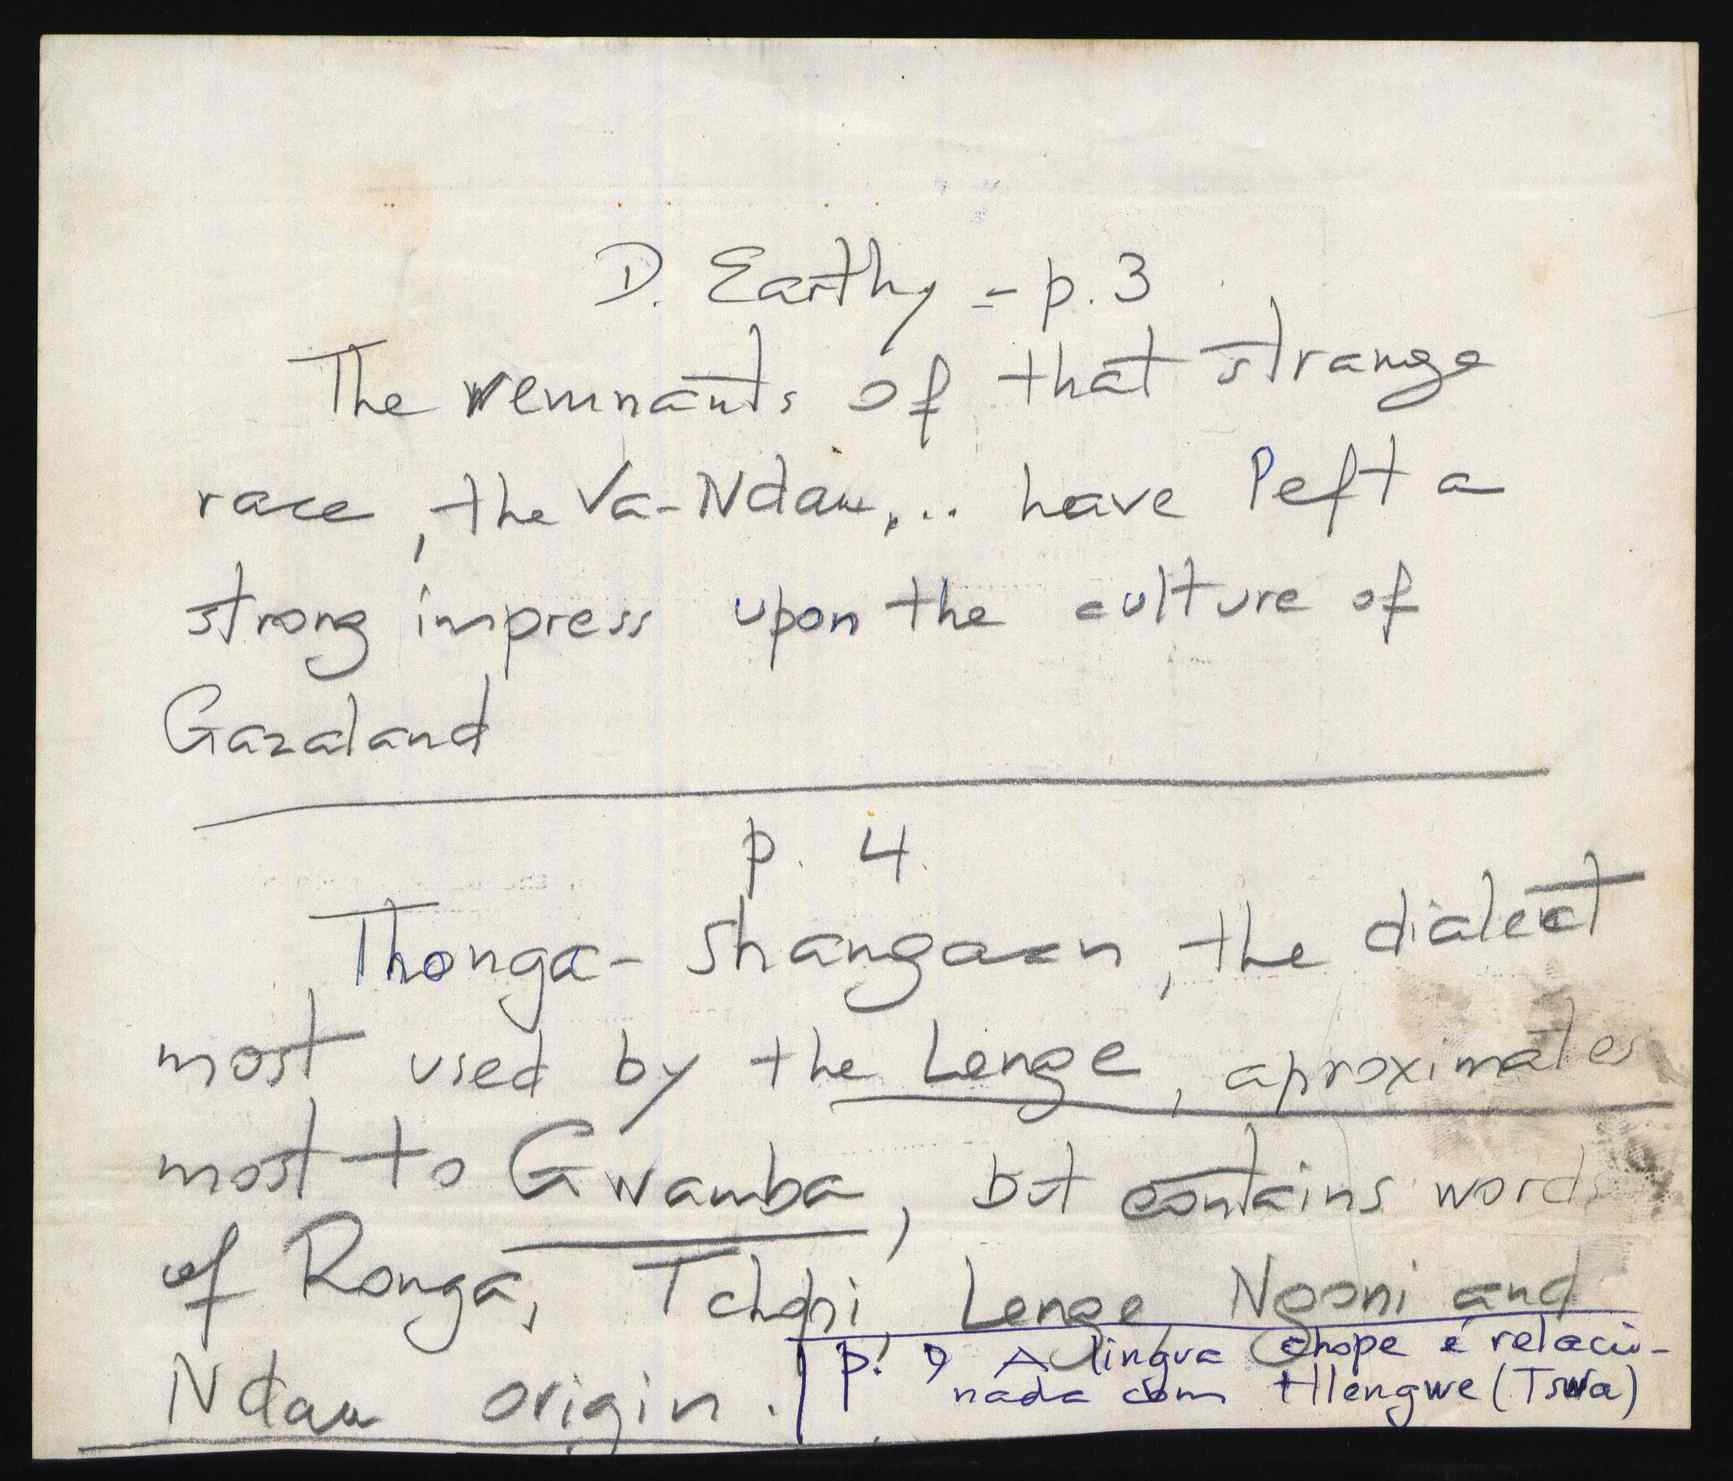 D. Earthy - p. 3
The remnants of that strange
race, the Va-Ndau,... have left a
strong impress upon the culture of
Gazaland
p. 4.
Thonga-Shangaan, the dialect
most used by the Lenge, aproximates
most to Gwamba, but contains words
of Ronga, Tchopi, Lenge, Ngoni and
Ndau origin.
p. 9 A lingua chope é relacio-
nada com Hlengwe (Tswa)